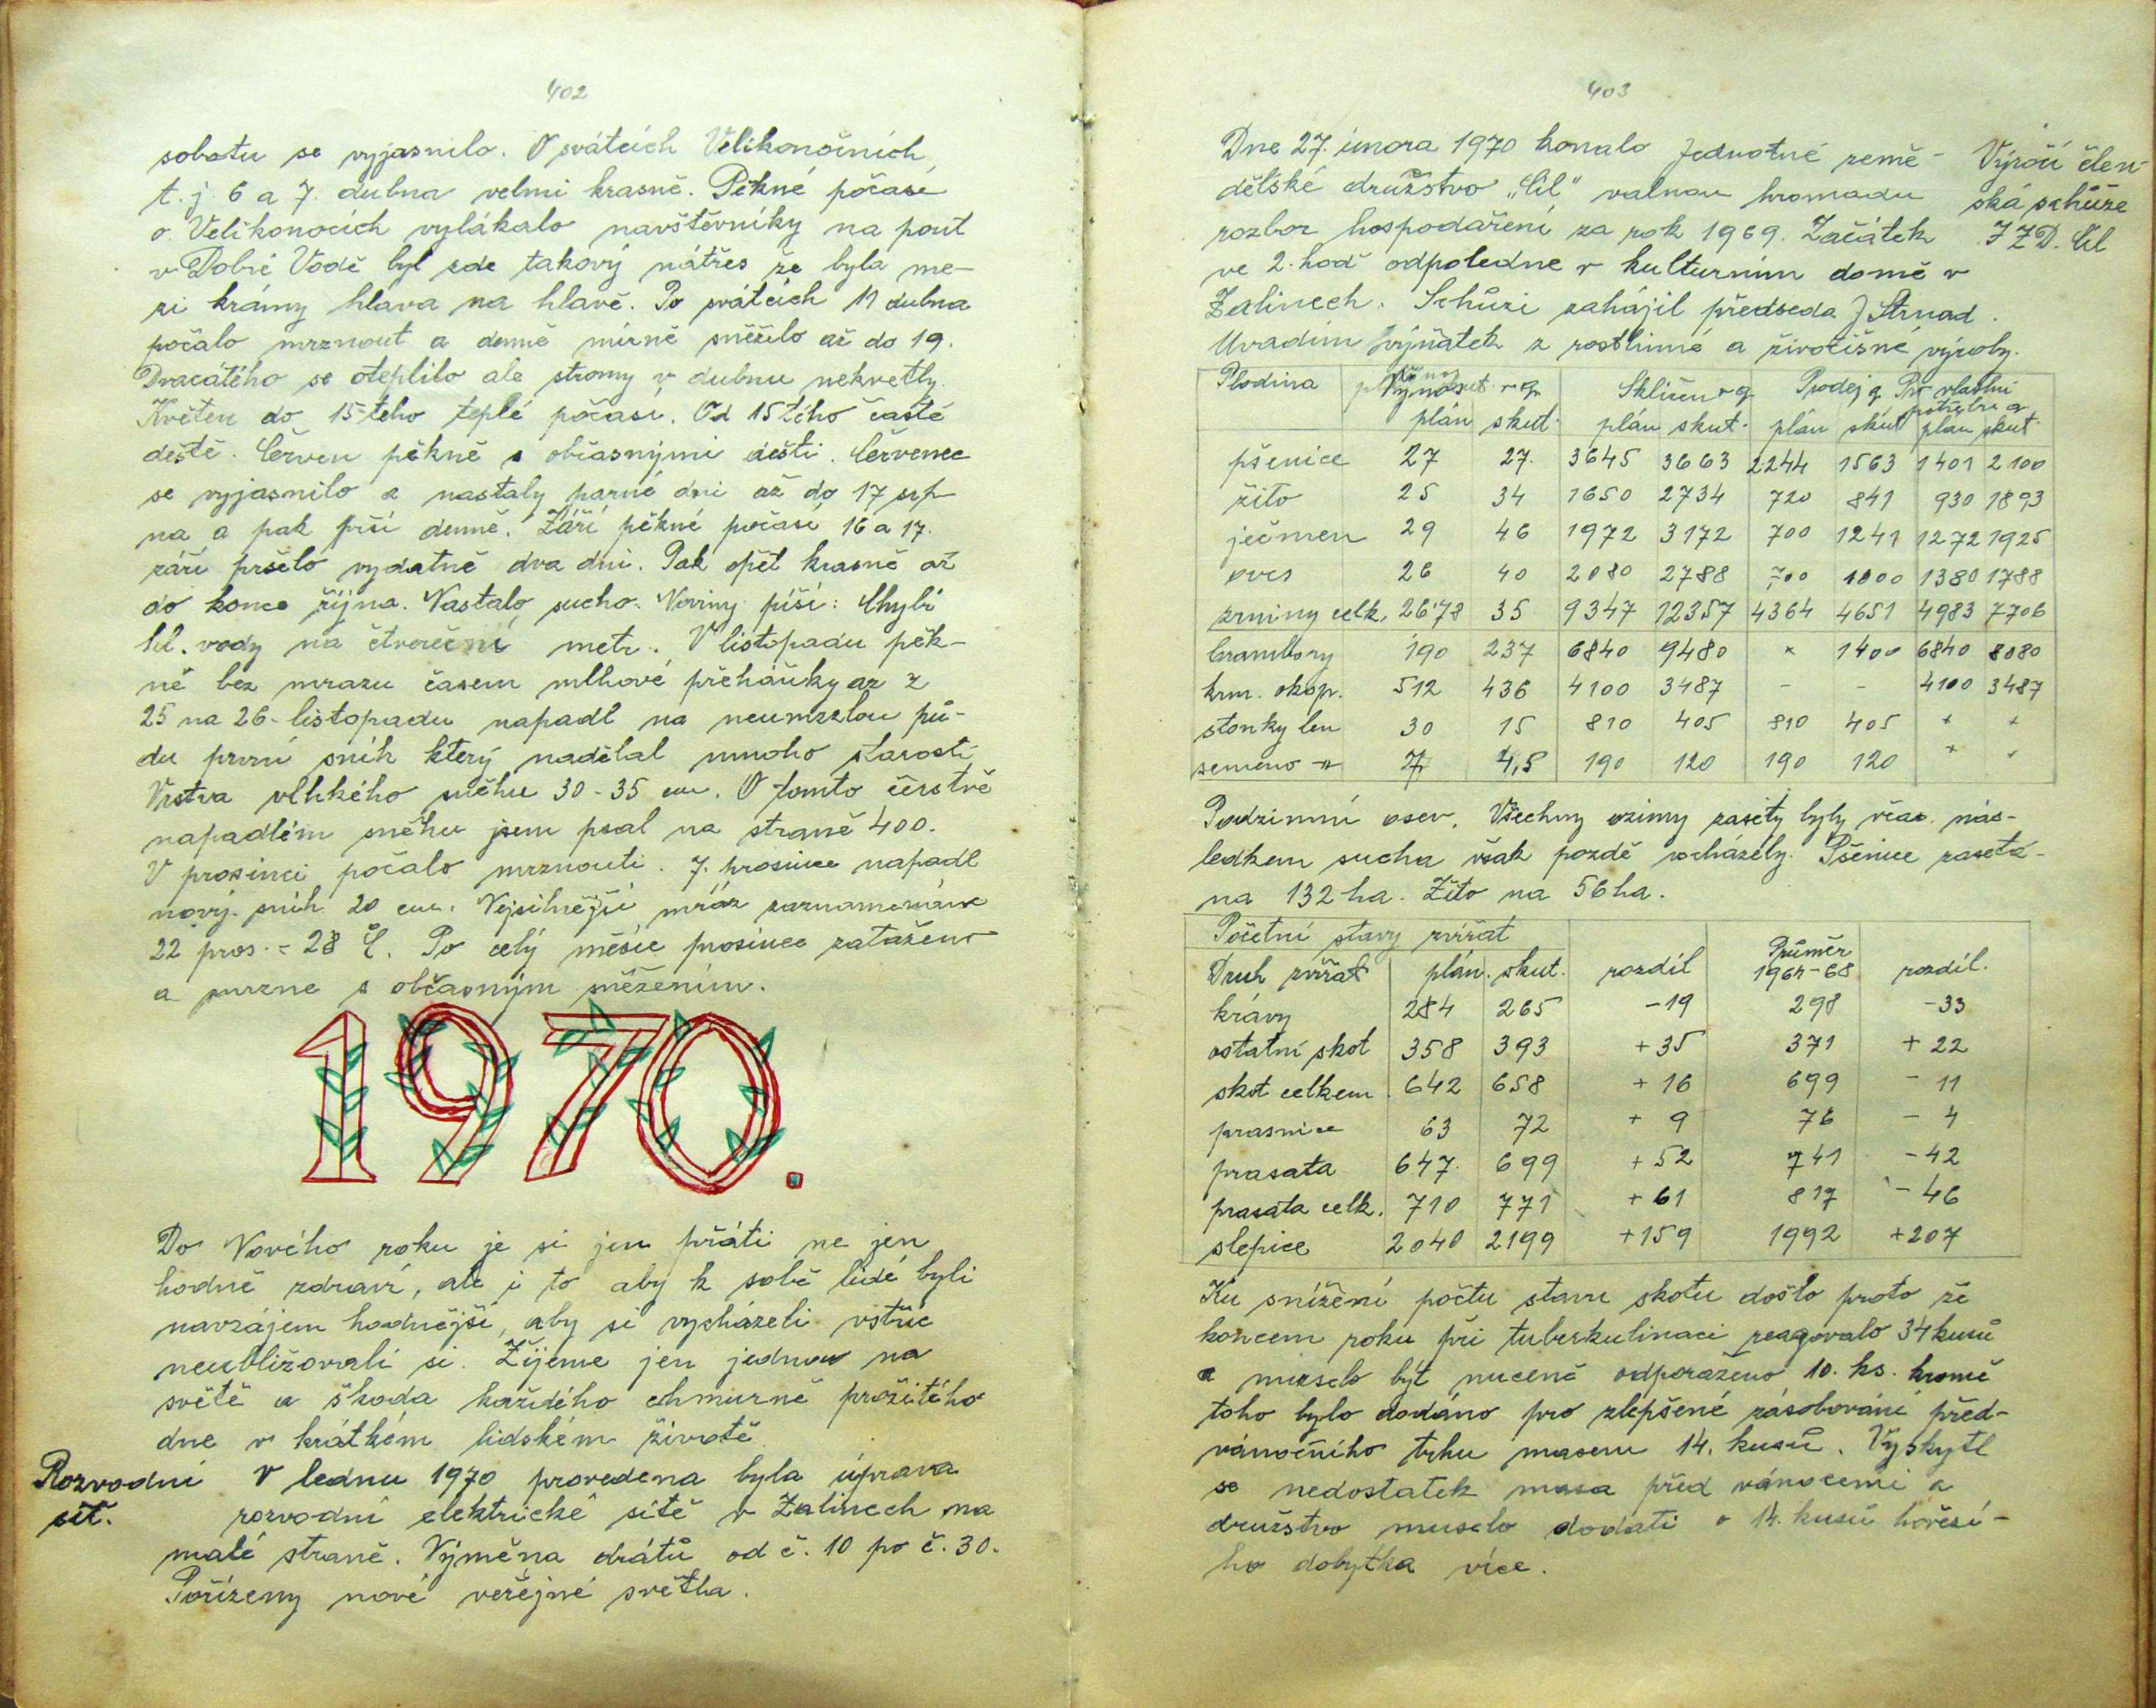 402
sobotu se vyjasnilo. O svátcích Velikonočních
t. j. 6 a 7. dubna velmi krasně. Pěkné počasí
o Velikonocích vylákalo navštěvníky na pout
v Dobré Vodě byl zde takový nátřes že byla me-
zi krámy hlava na hlavě. Po svátcích 11 dubna
počalo mrznout a denně mírně sněžilo až do 19.
Dvacátého se oteplilo ale stromy v dubnu nekvetly.
Květen do 15-tého teplé počasí. Od 15tého časté
deště. Červen pěkně s občasnými dešti. Červenec
se vyjasnilo a nastaly parné dni až do 17 srp-
na a pak prší denně. Září pěkné počasí 16 a 17.
září pršelo vydatně dva dni. Pak opět krasně až
do konce října. Nastalo sucho. Noviny píší: Chybí
hl. vody na čtvereční metr. V listopadu pěk-
ně bez mrazu časem mlhové přeháňky až z
25 na 26-listopadu napadl na neumrzlou pů-
du první sníh který nadělal mnoho starostí
Vrstva vlhkého sněhu 30-35 cm. O tomto čerstvě
napadlém sněhu jsem psal na straně 400.
V prosinci počalo mrznouti. 7. prosince napadl
nový sníh 20 cm. Nejsilnější mráz zaznamenán
22 pros. - 28 °C. Po celý měsíc prosinec zataženo
a mrzne s občasným sněžením.
1970.
Do Nového roku je si jen přáti ne jen
hodně zdraví, ale i to aby k sobě lidé byli
navzájem hodnější, aby si vycházeli vstříc
neubližovali si. Žijeme jen jednou na
světě a škoda každého chmurně prožitého
dne v krátkém lidském životě
Rozvodní síť.
V lednu 1970 provedena byla úprava
rozvodní elektrické sítě v Zalinech na
malé straně. Výměna drátů od č. 10 po č. 30.
Pořízeny nové veřejné světla.
403
Dne 27. února 1970 konalo Jednotné země-
dělské družstvo „Cíl" valnou hromadu
rozbor hospodaření za rok 1969. Začátek
ve 2. hod odpoledne v kulturním domě v
Zalinech. Schůzi zahájil předseda J Strnad.
Uvadím výňatek z rostlinné a živočišné výroby.
Výročí člen
ská schůze
JZD. Cíl
Plodina Výnos v q Sklizeň v q Prodej q Pro vlastní potřebu q
plán skut. plán skut. plán skut plán skut
pšenice 27 27. 3645 3663 2244 1563 1401 2100
žito 25 34 1650 2734 720 841 930 1893
ječmen 29 46 1972 3172 700 1241 1272 1925
oves 26 40 2080 2788 700 1000 1380 1788
zrniny celk. 26'78 35 9347 12357 4364 4651 4983 7706
brambory 190 237 6840 9480 × 1400 6840 8080
krm. okop. 512 436 4100 3487 - - 4100 3487
stonky len 30 15 810 405 810 405 × ×
semeno -"- 7 4,5 190 120 190 120 × ×
Podzimní osev. Všechny ozimy zasety byly včas nás-
ledkem sucha však pozdě vcházely. Pšenice zaseta-
na 132 ha. Žito na 56 ha.
Početní stavy zvířat
Druh zvířat plán. skut. rozdíl Průměr 1964-68 rozdíl.
krávy 284 265 -19 298 -33
ostatní skot 358 393 +35 371 +22
skot celkem 642 658 +16 699 -11
prasnice 63 72 +9 76 -4
prasata 647. 699 +52 741 -42
prasata celk. 710 771 +61 817 -46
slepice 2040 2199 +159 1992 +207
Ku snížení počtu stavu skotu došlo proto že
koncem roku při tuberkulinaci reagovalo 34 kusů
a muselo být nuceně odporaženo 10. ks. kromě
toho bylo dodáno pro zlepšené zásobování před-
vánočního trhu masem 14. kusů. Vyskytl
se nedostatek masa před vánocemi a
družstvo muselo dodati o 14. kusů hovězí-
ho dobytka více.